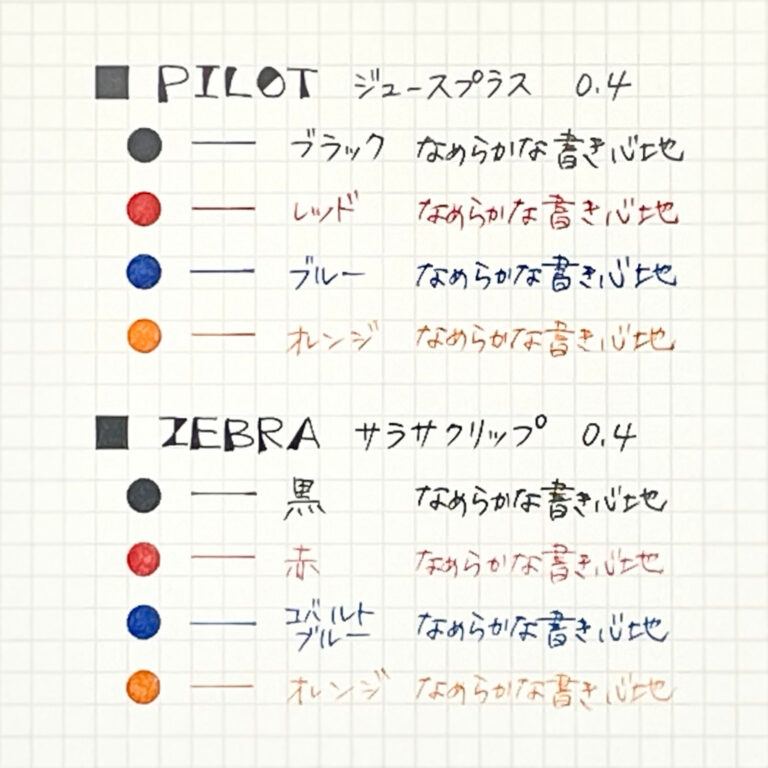 PILOT ジュースプラス 0.4
ブラック なめらかな書き心地
レッド なめらかな書き心地
ブルー なめらかな書き心地
オレンジ なめらかな書き心地
ZEBRA サラサクリップ 0.4
黒 なめらかな書き心地
赤 なめらかな書き心地
コバルト
ブルー なめらかな書き心地
オレンジ なめらかな書き心地